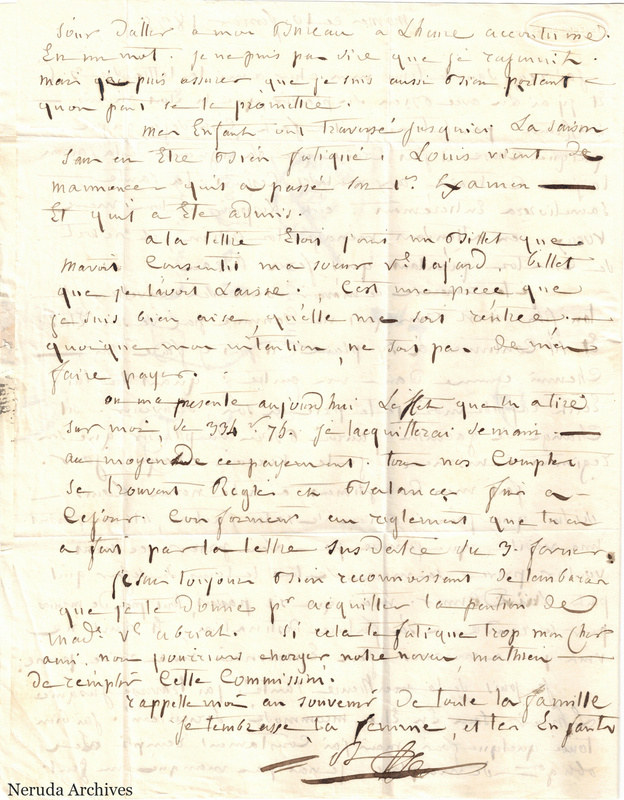 jour d'aller a mon Bureau a Lheure accoutumé.
En un mot. je ne puis pas dire que je rajeunit.
mais je puis assurer que je suis aussi Bien portant
qu'on peut se le promettre.
mes Enfants ont traversé jusqu'ici La saison
sans en Etre Bien fatigué. Louis vient de
m'annoncer qu'il a passé son 1er. Examen
Et qu'il a Ete admis.
a la lettre Etois joint un Billet que
m'avoit Consenti ma sœur ve. lajard. billet
que je lavoit Laissé. C'est une piece que
je suis bien aise, qu'elle me soit rentrée.
quoique mon intention, ne soit pas de m'en
faire payer.
on ma presente aujourd'hui Leffet que tu a tiré
sur moi, de 334 76. je lacquitterai demain.
au moyen de ce payement. tous nos Comptes
se trouvent Reglé et Balancé, jus a
Cejour. Conformement au reglement que tu en
a fait par la lettre susdatée du 3. fevrier
je suis toujours Bien reconnoissant de lambaras
que je te Donne pr acquitter la pention de
made. ve abriat. Si cela te fatigue trop mon cher
ami, nous pourrions charger notre neveu, mathieu
de remplir Cette Commission.
rappelle moi au souvenir de toute la famille
je t'embrasse, ta femme, et tes Enfants
Neruda Archives